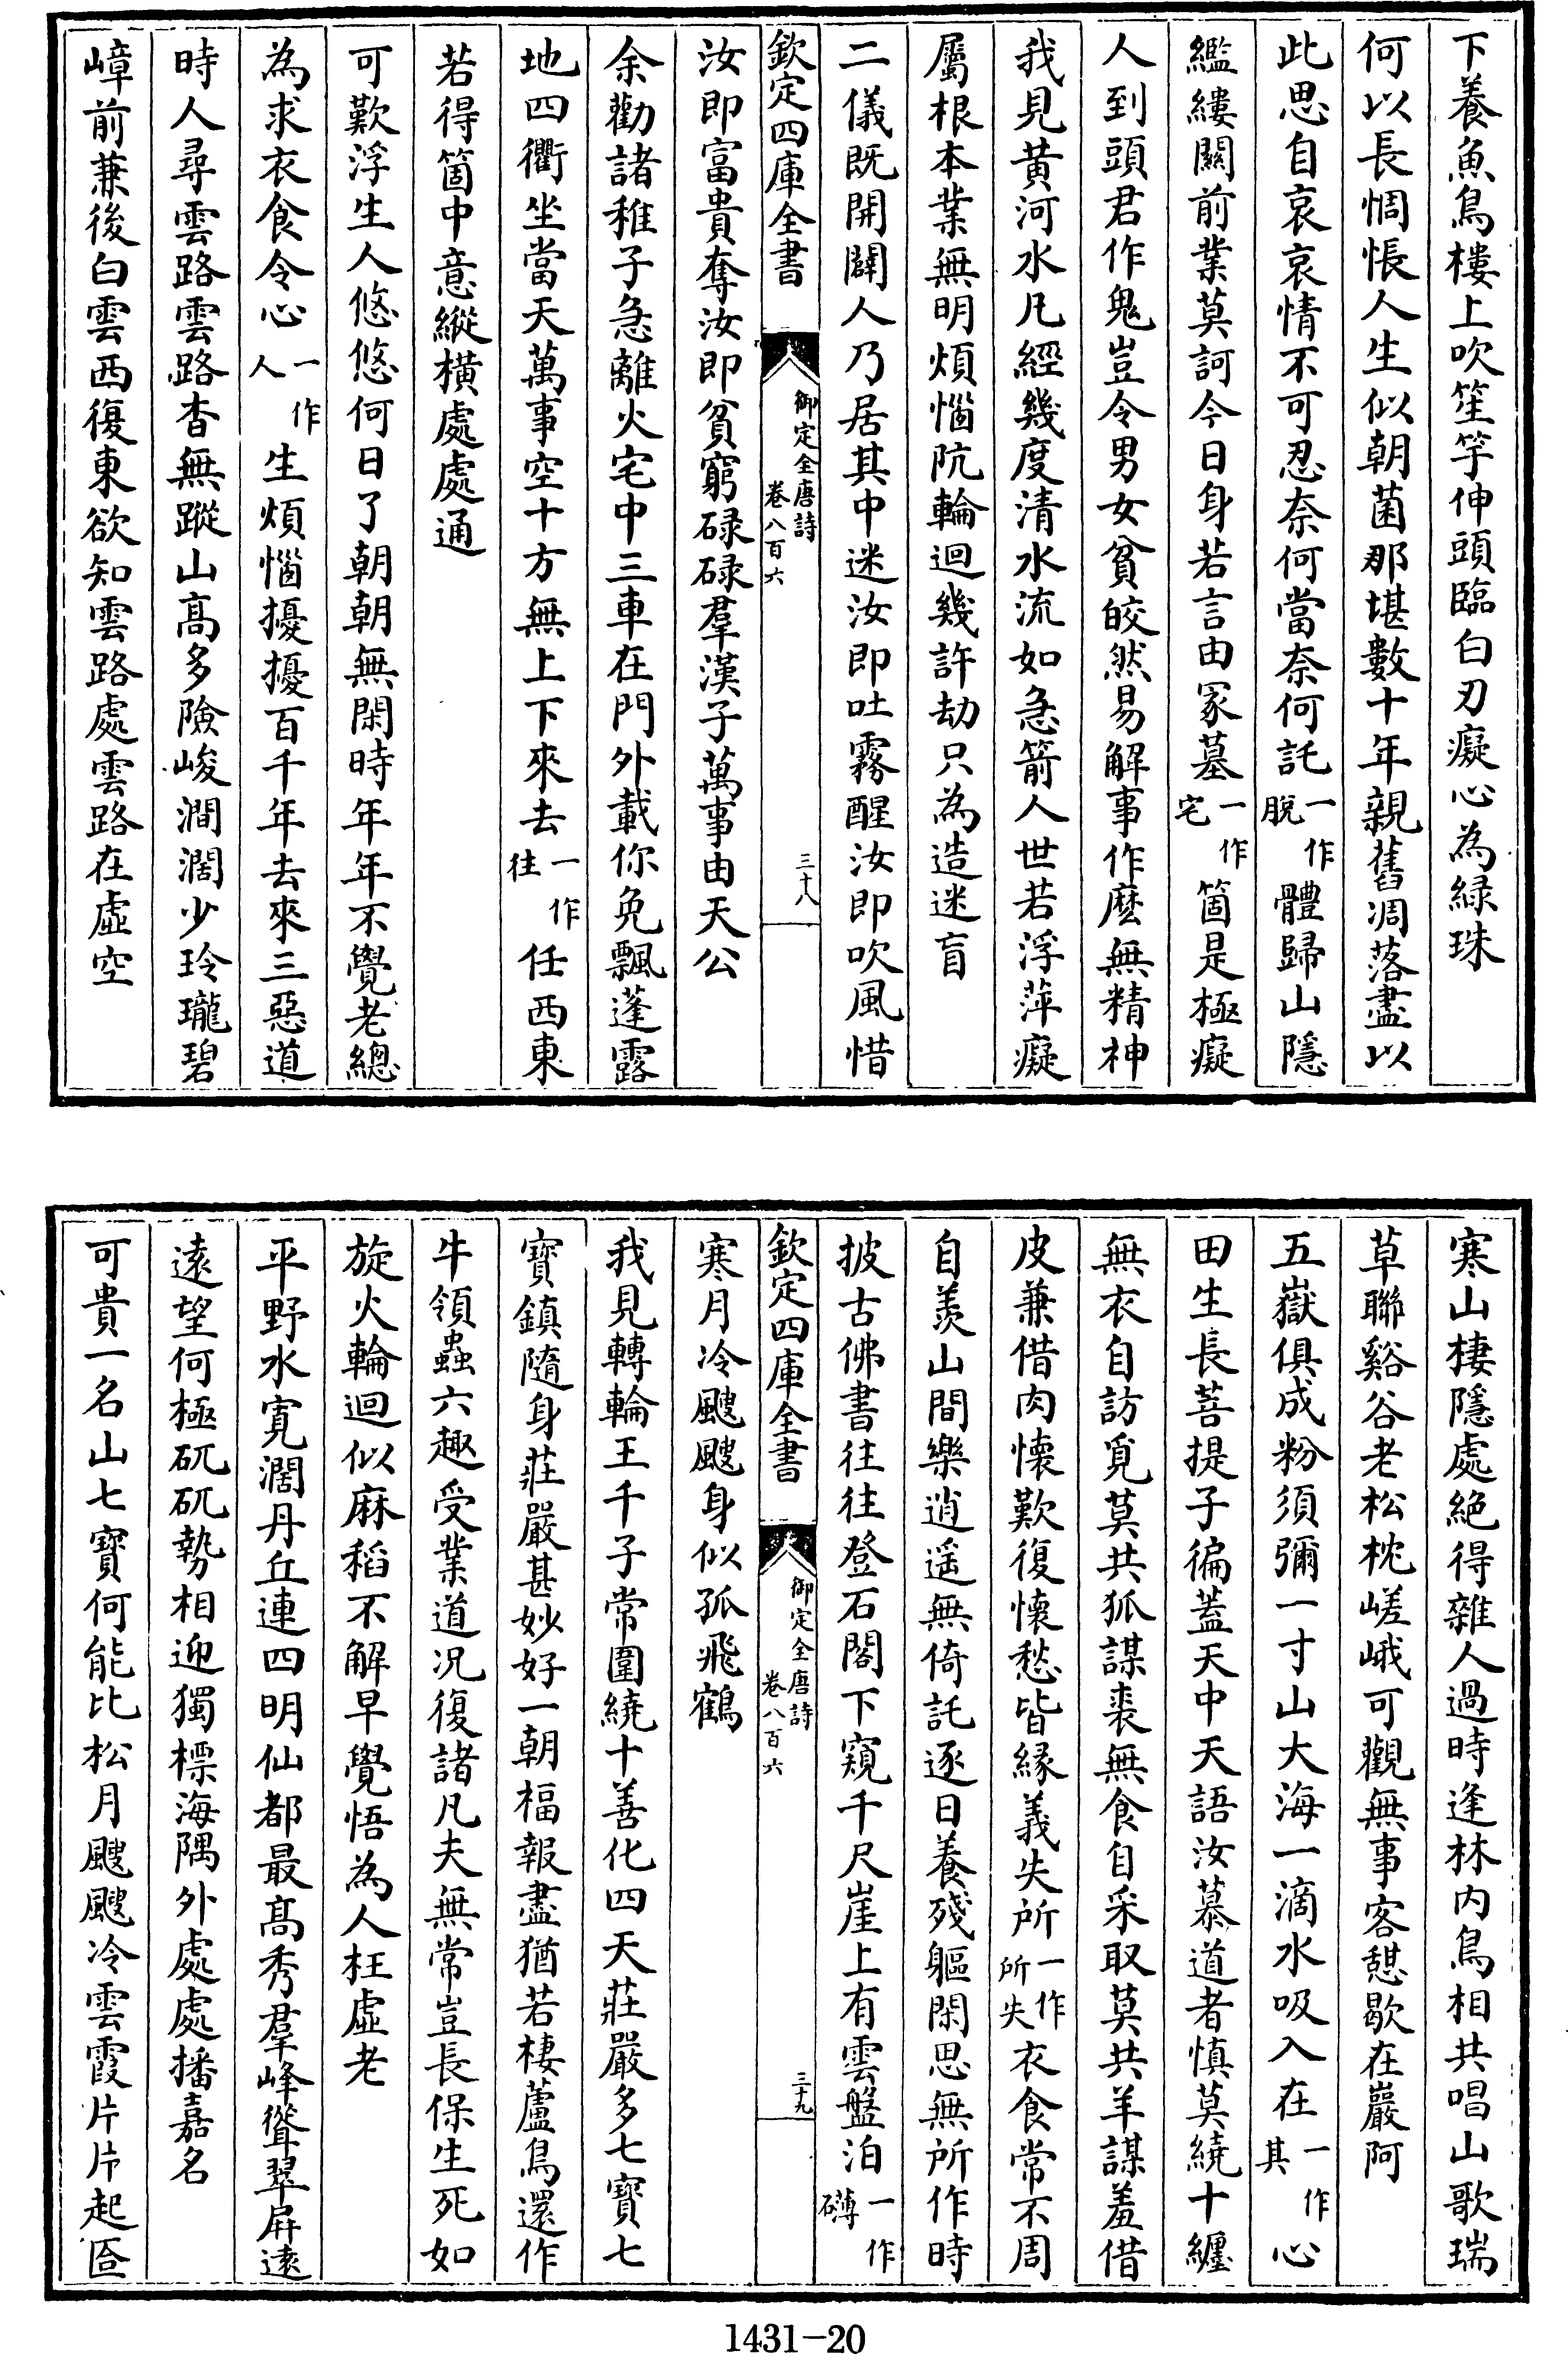 下養魚鳥樓上吹笙竽伸頭臨白刃癡心為緑珠
何以長惆悵人生似朝菌那堪數十年親舊凋落盡以
此思自哀哀情不可忍奈何當奈何託一作脫體歸山隱
繿縷關前業莫訶今日身若言由冢墓一作宅箇是極癡
人到頭君作鬼豈令男女貧皎然易解事作麽無精神
我見黄河水凡經幾度清水流如急箭人世若浮萍癡
屬根本業無明煩惱阬輪迴幾許劫只為造迷盲
二儀既開闢人乃居其中迷汝即吐霧醒汝即吹風惜
欽定四庫全書
御定全唐詩
卷八百六
三十八
汝即富貴奪汝即貧窮碌碌羣漢子萬事由天公
余勸諸稚子急離火宅中三車在門外載你免飄蓬露
地四衢坐當天萬事空十方無上下來去一作往任西東
若得箇中意縱橫處處通
可歎浮生人悠悠何日了朝朝無閑時年年不覺老總
為求衣食令心一作人生煩惱擾擾百千年去來三惡道
時人尋雲路雲路杳無蹤山高多險峻澗濶少玲瓏碧
嶂前兼後白雲西復東欲知雲路處雲路在虛空
寒山棲隱處絶得雜人過時逢林内鳥相共唱山歌瑞
草聯谿谷老松枕嵯峨可觀無事客憩歇在巖阿
五嶽俱成粉須彌一寸山大海一滴水吸入在一作其心
田生長菩提子徧蓋天中天語汝慕道者慎莫繞十纏
無衣自訪覓莫共狐謀裘無食自采取莫共羊謀羞借
皮兼借肉懷歎復懷愁皆縁義失所一作所失衣食常不周
自羨山間樂逍遥無倚託逐日養殘軀閑思無所作時
披古佛書往往登石閣下窺千尺崖上有雲盤泊一作礴
欽定四庫全書
御定全唐詩
卷八百六
三十九
寒月冷颼颼身似孤飛鶴
我見轉輪王千子常圍繞十善化四天莊嚴多七寶七
寶鎮隨身莊嚴甚妙好一朝福報盡猶若棲蘆鳥還作
牛領蟲六趣受業道况復諸凡夫無常豈長保生死如
旋火輪迴似麻稻不解早覺悟為人枉虛老
平野水寛濶丹丘連四明仙都最高秀羣峰聳翠屛遠
遠望何極矹矹勢相迎獨標海隅外處處播嘉名
可貴一名山七寶何能比松月颼颼冷雲霞片片起匼
1431-20